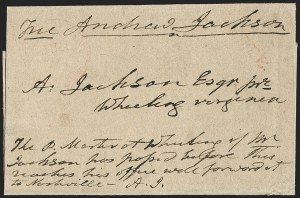 Free Andrew Jackson
A. Jackson Esqr
Wheeling virginea
The P. Master at Wheeling if Mr
Jackson has passed before this
reaches his office will forward it
to Nashville — A. J.